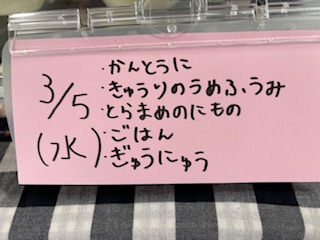 3/5
(水)
・かんとうに
・きゅうりのうめふうみ
・とらまめのにもの
・ごはん
・ぎゅうにゅう